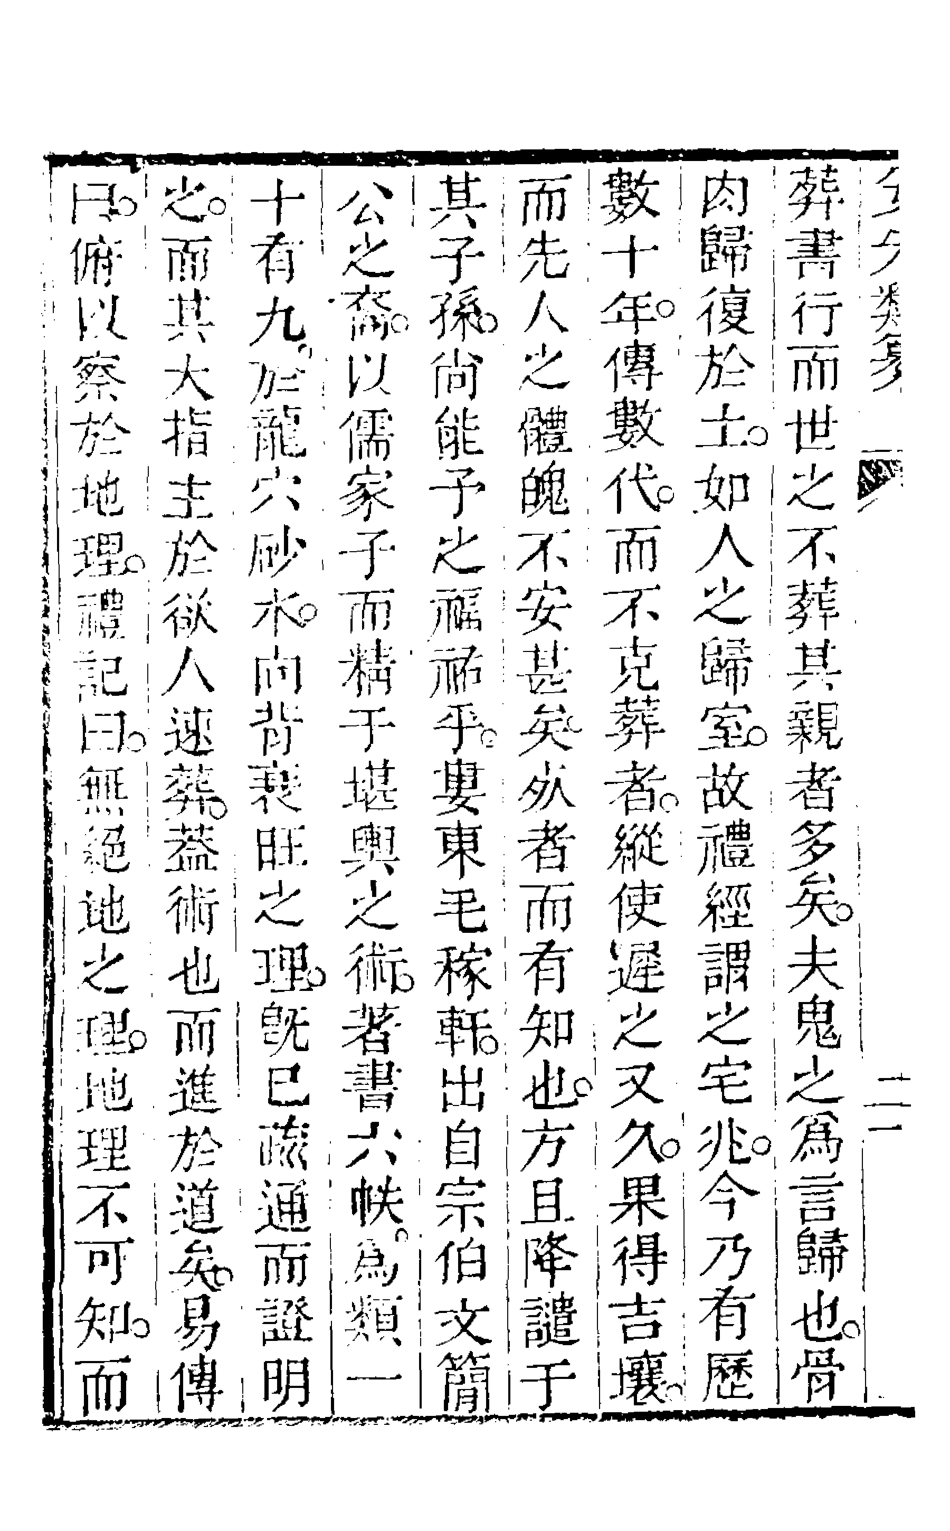 類纂
二
葬書行而世之不葬其親者多矣。夫鬼之爲言歸也。骨
肉歸復於土。如人之歸室。故禮經謂之宅兆。今乃有歷
數十年。傳數代。而不克葬者。縱使遲之又久。果得吉壤。
而先人之體魄不安甚矣。死者而有知也。方且降譴于
其子孫。尚能予之福祐乎。婁東毛稼軒。出自宗伯文簡
公之裔。以儒家子而精于堪輿之術。著書六帙。爲類一
十有九。於龍穴砂水。向背衰旺之理。旣已疏通而證明
之。而其大指主於欲人速葬。葢術也而進於道矣。易傳
曰。俯以察於地理。禮記曰。無絕地之理。地理不可知。而